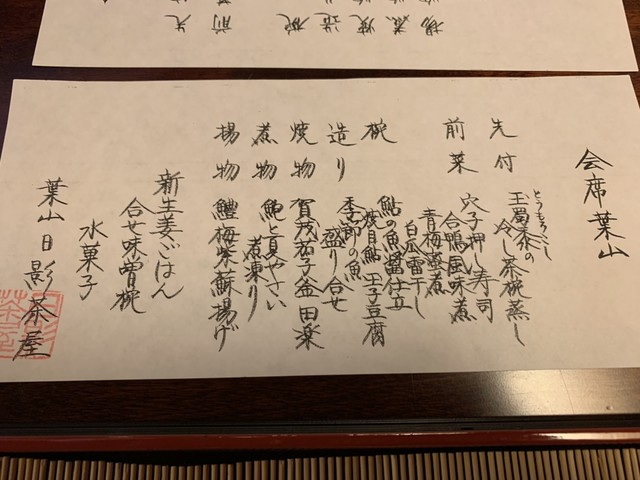 会席葉山
先付
とうもろこし
玉蜀黍の
冷し茶椀蒸し
前菜
穴子押し寿司
合鴨風味煮
青梅蜜煮
白瓜雷干し
椀
鮎の魚醤仕立
焼目鮎 玉子豆腐
造り
季節の魚
盛り合せ
焼物
賀茂茄子釜田楽
煮物
鮑と夏やさい
煮凍り
揚物
鱧梅紫蘇揚げ
新生姜ごはん
合せ味噌椀
水菓子
葉山日影茶屋